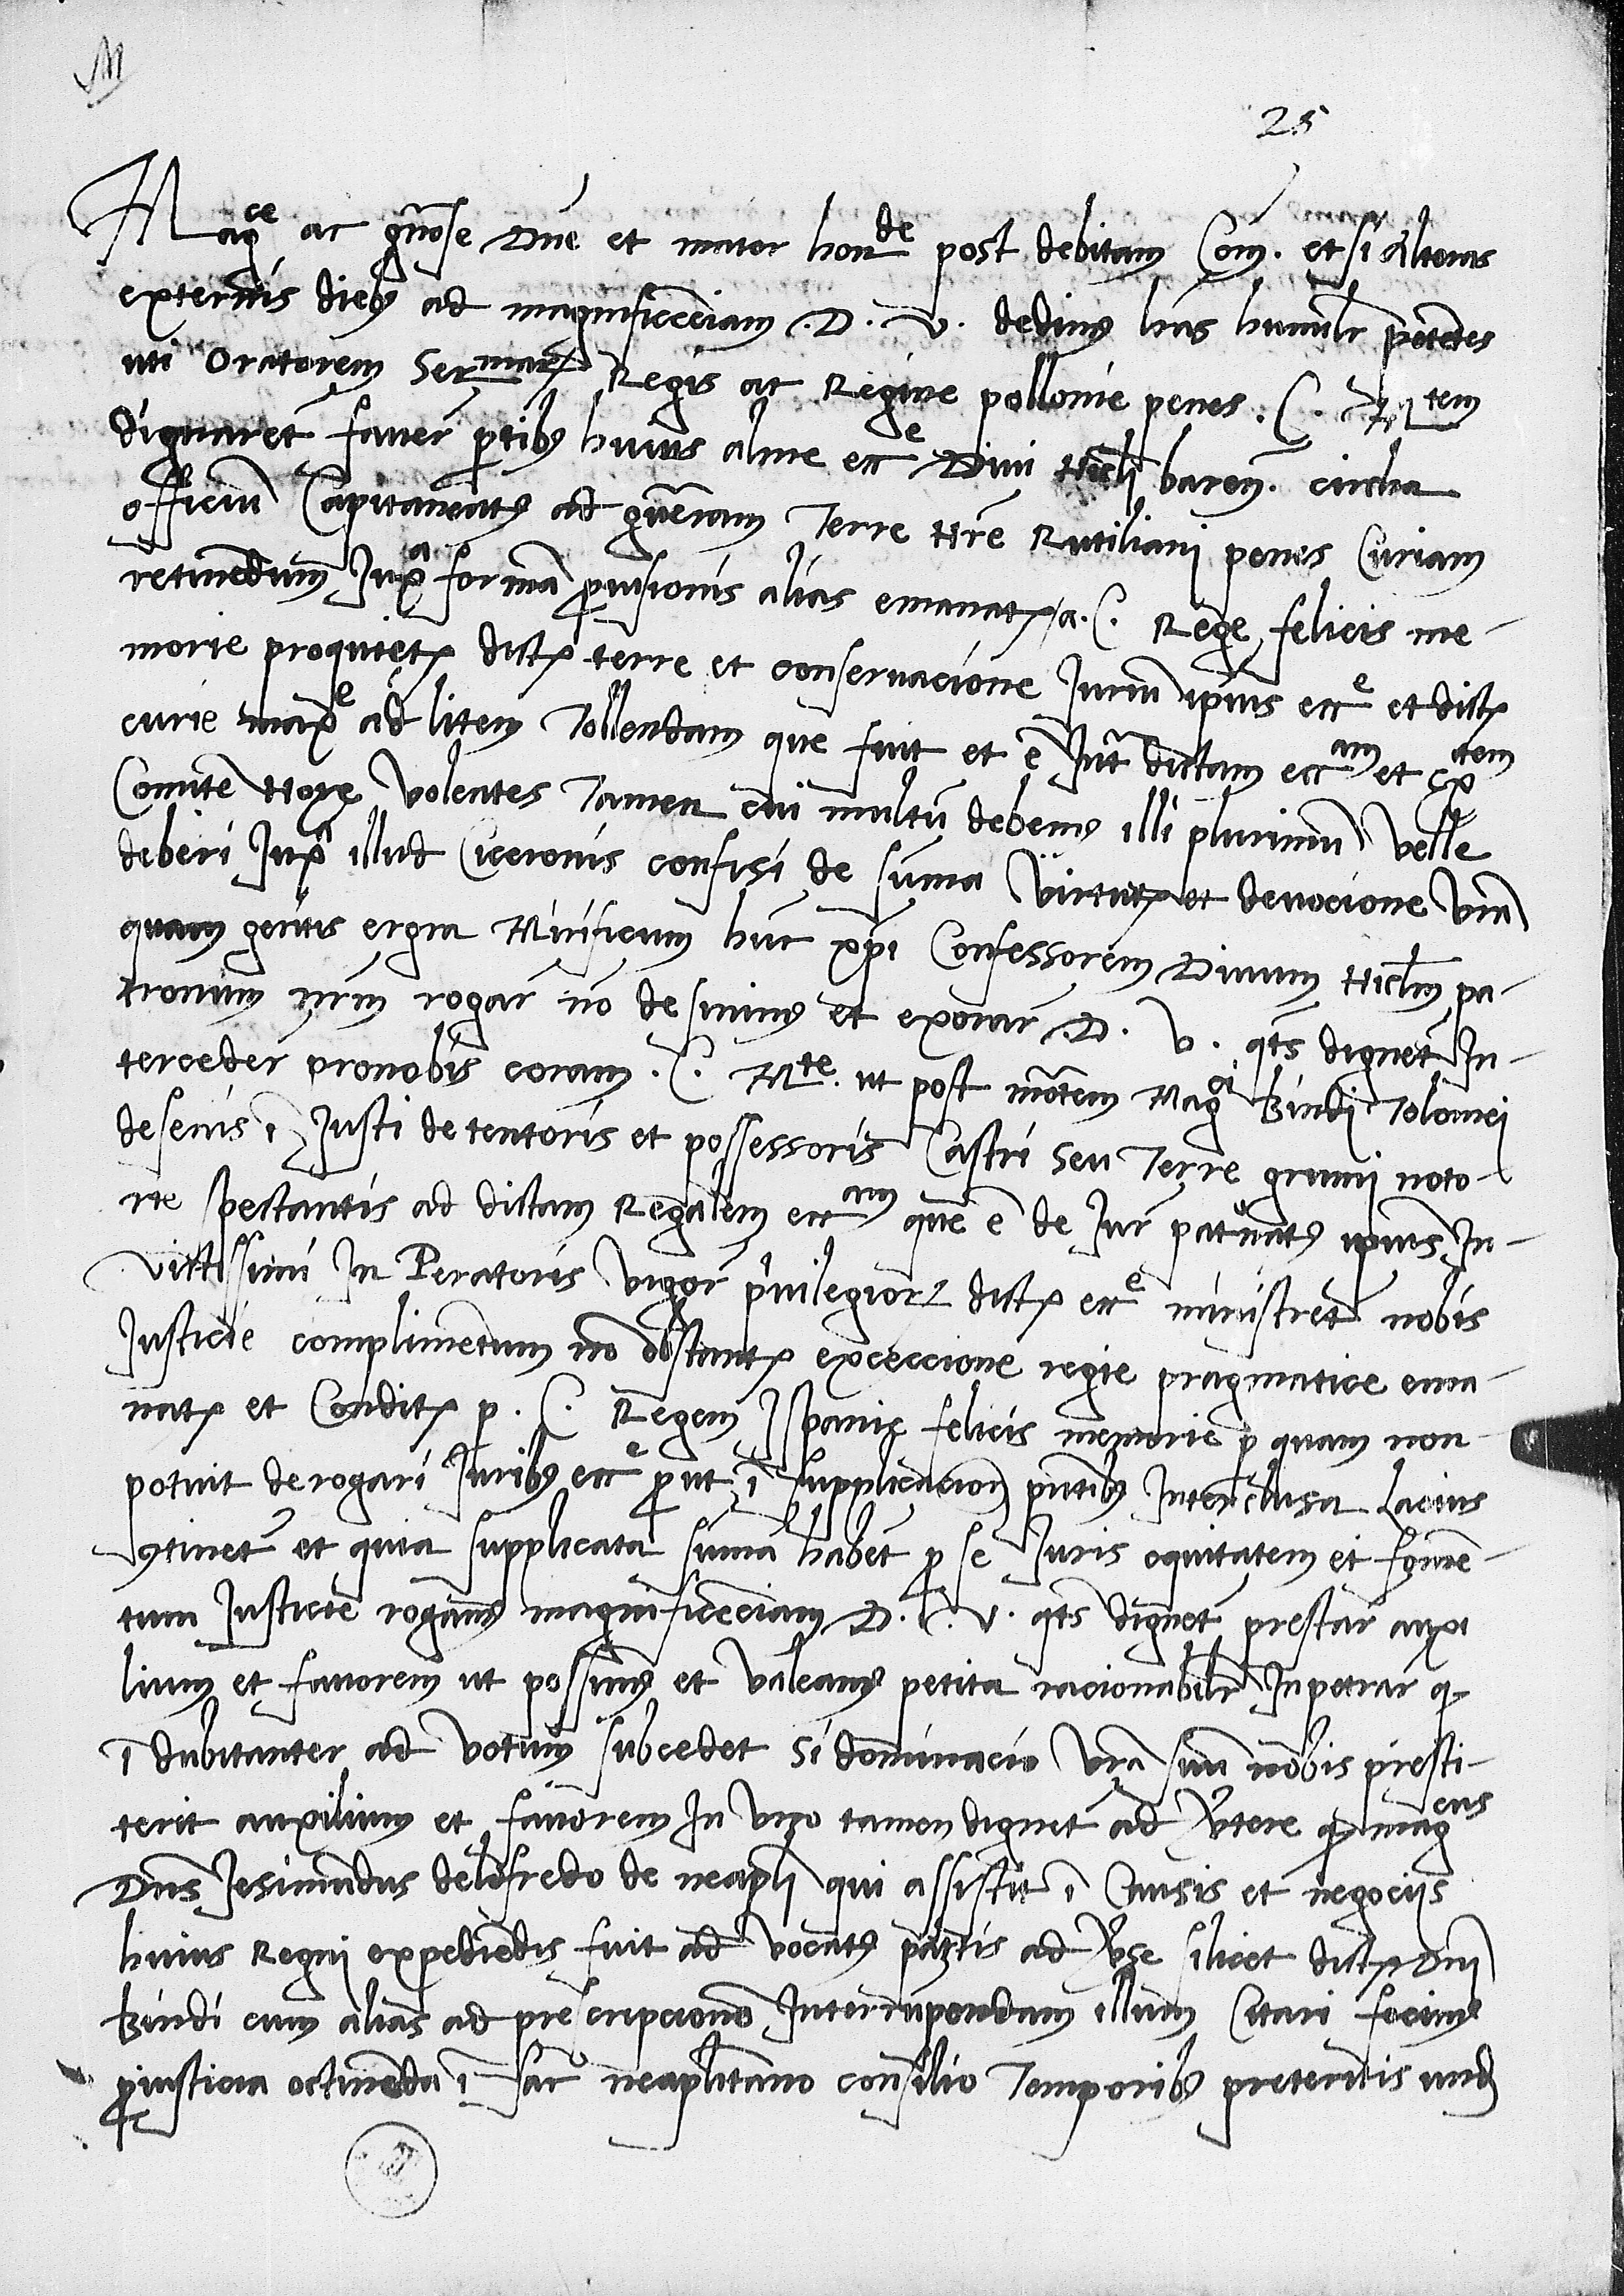 25
Magce ac gnose Dne et maior honde post debitam Com. et si alteras
externis dieb9 ad magnificēciam .D. V. dedim9 has humilr petētes
uti Oratorem Sermarū Regis ac Regine pollonie penes .C. Mtem
dignaret̄ fauer ptib9 huius alme ecce Diui Nicli baren. circha
officiu Capitaneat9 ad guerram Terre nrē Rutiliani penes Curiam
retinedum Juxa formā prouisionis alias emanate a .C. Rege felicis me-
morie pro quiete dicte terre et conseruacione Juriu ipius ecce et dicte
curie maxe ad litem Tollendam que fuit et ē Intr dictam eccam et
Comitē volentes Tamen cui multū debem9 illi plurimū velle
deberi Juxa illud Ciceronis confisi de suma virtute et deuocione vrā
quam geritis ergra Mirificum hūc xpi Confessorem Diuum Niclm pa-
tronum nrm rogar nō desinim9 et exorar .D. V. qts dignet̄ In-
terceder pro nobis coram .C. Mte. ut post mōtem Magci Bindi Tolomei
de senis ī Justi detentoris et possessoris Castri seu Terre grumi noto-
rie spectantis ad dictam Regalem eccam que ē de Jur patronat9 ipius In-
victissimi In Peratoris vigor priuilegior dicte ecce ministret̄ nobis
Justicie complimētum nō obstante excecciōne regie pragmatice ema-
nate et Condite p .C. Regem Ispanie felicis memorie p quam non
potuit derogari Jurib9 ecce put ī supplicacion pntib9 Interclusa Lacius
9tinet̄ et quia supplicata sumā habēt p se Juris equitatem et fomē-
tum Justicie rogam9 magnificēciam D. V. qts dignet̄ prestar auxi
lium et fauorem ut possim9 et valeam9 petita racionabilr Inpetrar q
ī dubitanter ad votum subcedet si dominacio vrā suū nobis presti-
terit auxilium et fauorem In vno tamen dignet̄ aduertere q magcus
Dns Jesimundus de lofredo de neapli qui assistit ī Causis et negociis
huius Regni expediēdis fuit aduocat9 partis aduerse silicet dicte Dni
Bindi cum alias ad prescripcionē Interrupendam illum Citari fecim9
p iusticia octinēda ī sac neaplitano consilio Temporib9 preteritis und